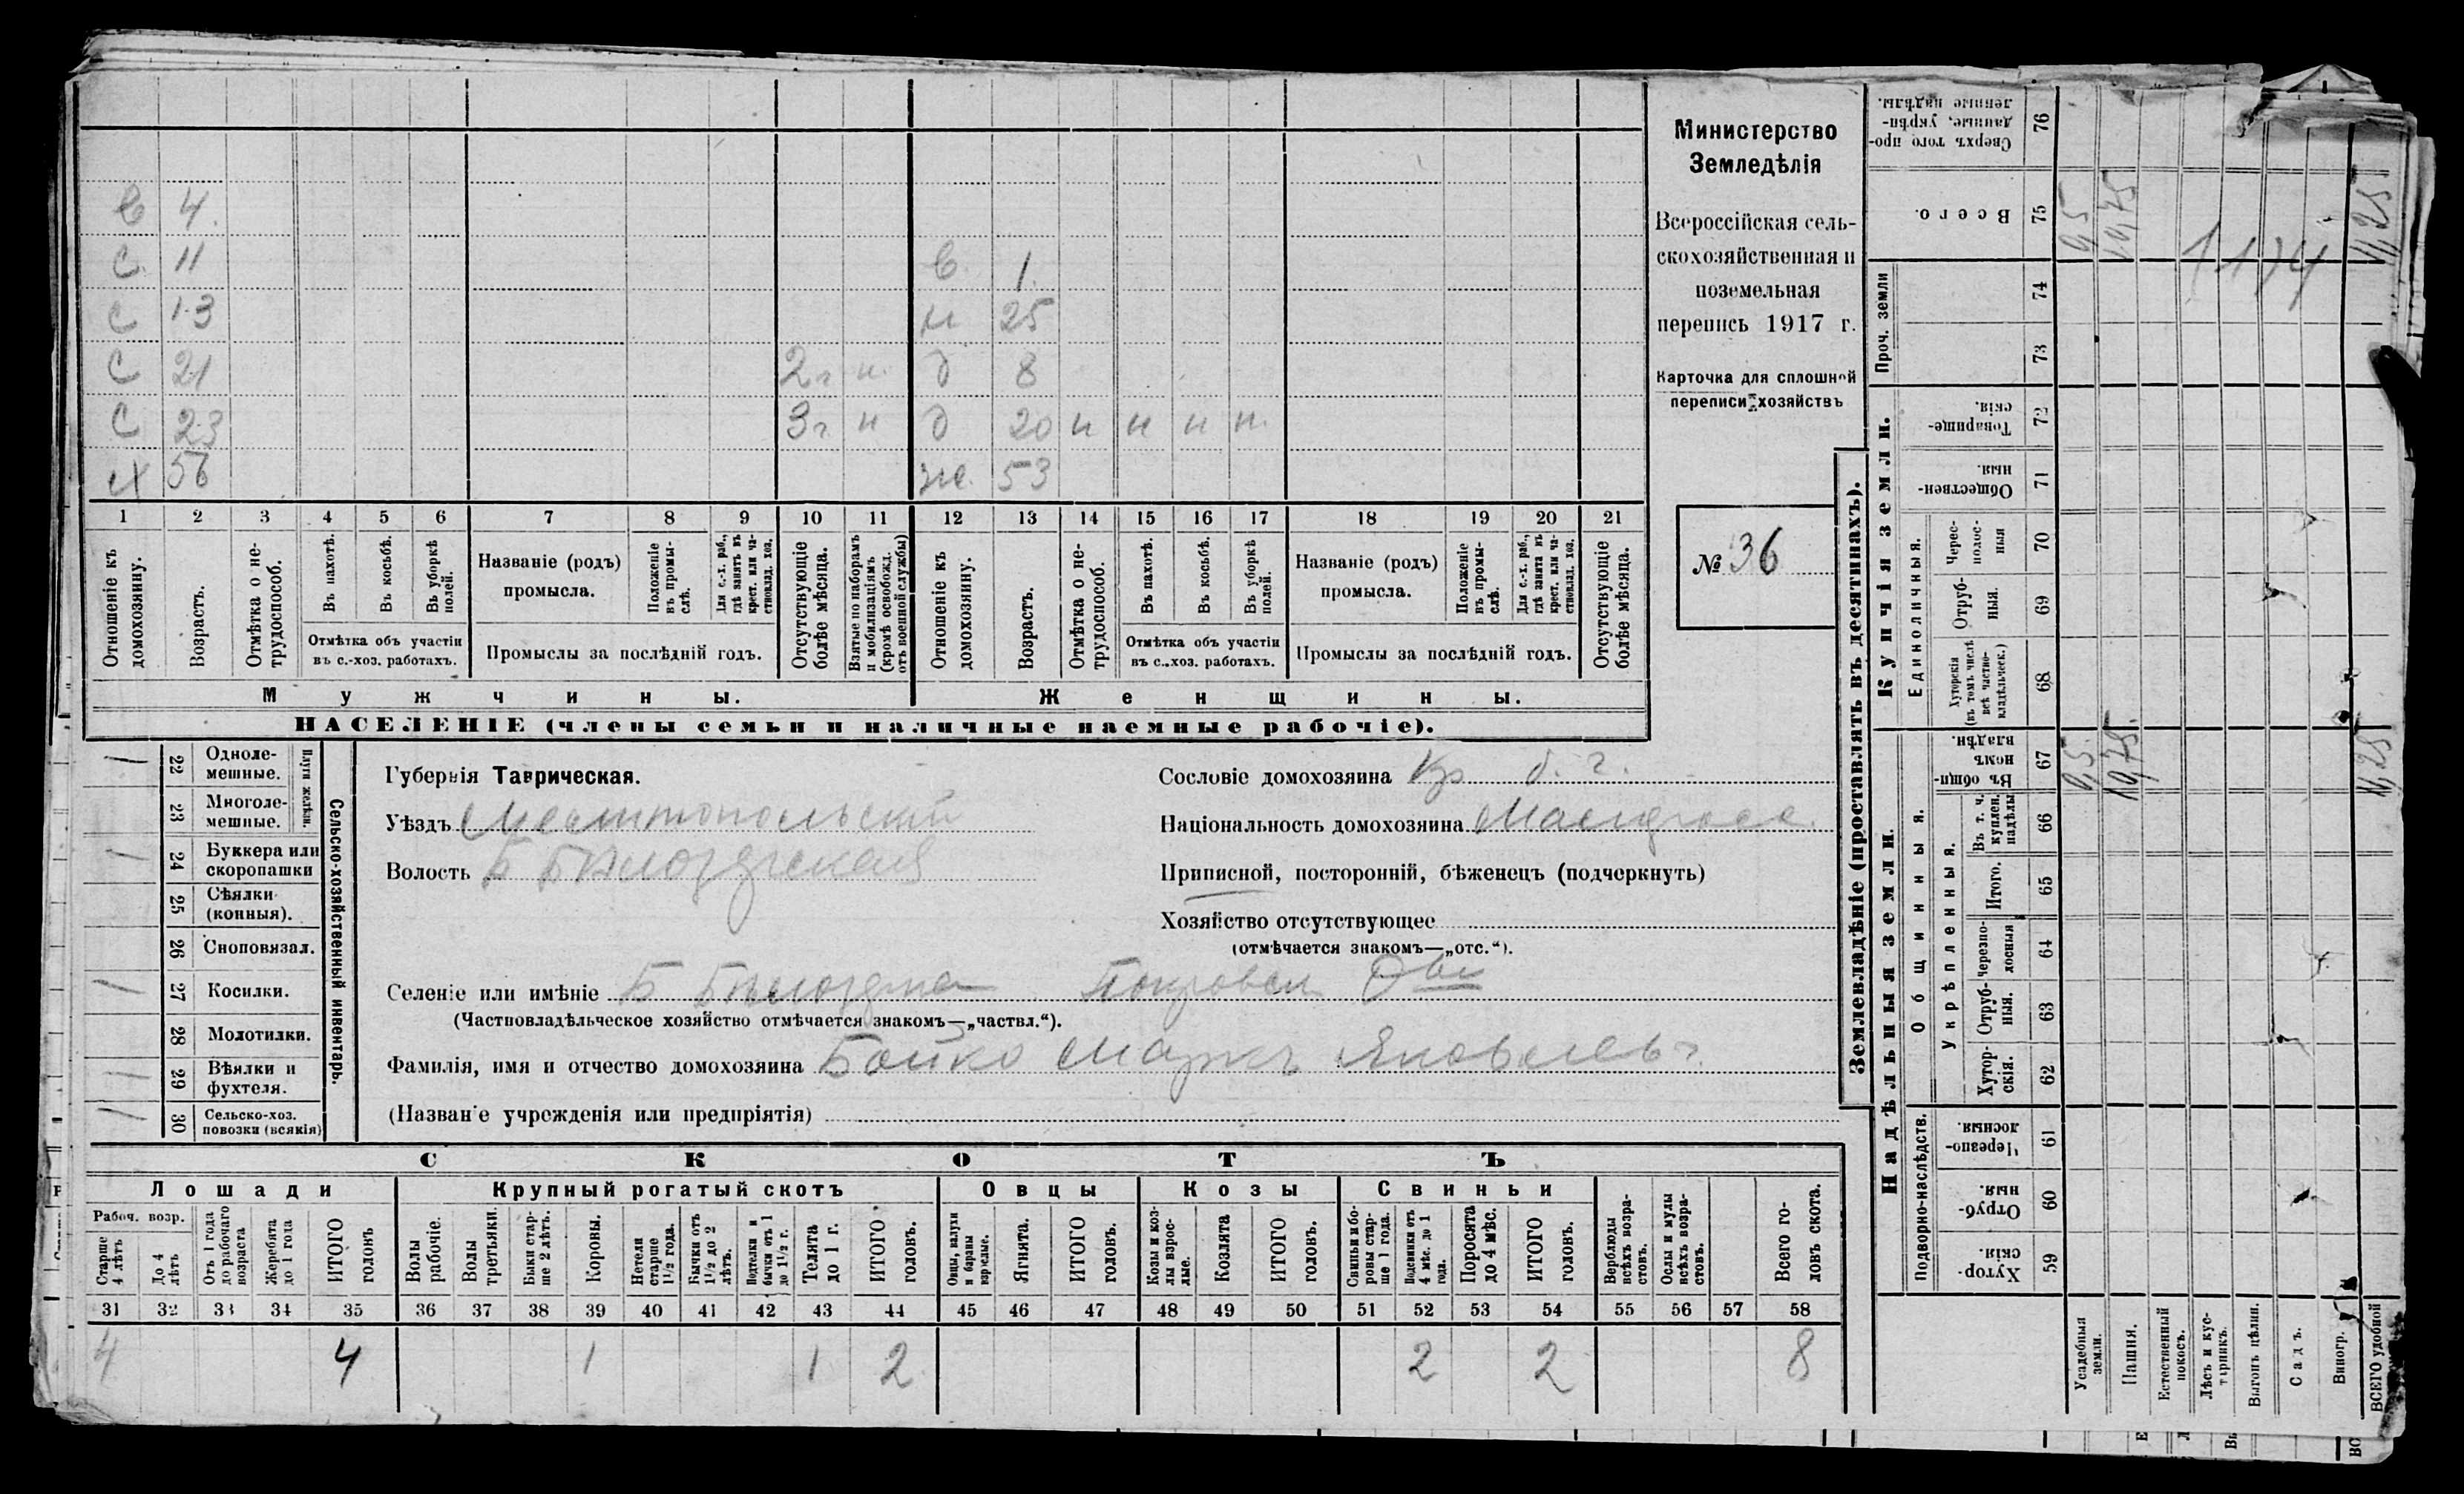 в 4.
с. 11 в. 1
с 13 н 25
с 21 2 г н. д 8
с 23 3 г н д 20 н н н н.
х 56 же. 53
1 2 3 4 5 6 7 8 9 10 11 12 13 14 15 16 17 18 19 20 21
Отношеніе къ домохозяину.
Возрастъ.
Отмѣтка о не-трудоспособ.
Въ пахотѣ.
Въ косьбѣ.
Въ уборкѣ полей.
Отмѣтка объ участіи
въ с.-хоз. работахъ.
Названіе (родъ)
промысла.
Положеніе въ промы-слѣ.
Для с.-х. раб., гдѣ занятъ въ крест. или ча-стновлад. хоз.
Промыслы за послѣдній годъ.
Отсутствующіе болѣе мѣсяца.
Взятые по наборамъ и мобилизаціямъ (кромѣ освобожд. отъ военной службы)
Отношеніе къ домохозяину.
Возрастъ.
Отмѣтка о не-трудоспособ.
Въ пахотѣ.
Въ косьбѣ.
Въ уборкѣ полей.
Отмѣтка объ участіи
въ с.-хоз. работахъ.
Названіе (родъ)
промысла.
Положеніе въ промы-слѣ.
Для с.-х. раб., гдѣ занята въ крест. или ча-стновлад. хоз.
Промыслы за послѣдній годъ.
Отсутствующіе болѣе мѣсяца.
Мужчины. Женщины.
НАСЕЛЕНІЕ (члены семьи и наличные наемные рабочіе).
Министерство
Земледѣлія
Всероссійская сель-
скохозяйственная и
поземельная
перепись 1917 г.
Карточка для сплошной
переписи хозяйствъ
№ 36
Сельско-хозяйственный инвентарь.
Плуги желѣзн.
/ 22 Одноле-мешные.
23 Многоле-мешные.
/ 24 Буккера или скоропашки
25 Сѣялки (конныя).
26 Сноповязал.
/ 27 Косилки.
28 Молотилки.
/ 29 Вѣялки и фухтеля.
/ 30 Сельско-хоз. повозки (всякія)
Губернія Таврическая.
Уѣздъ Мелитопольскій
Волость Б Бѣлозерская
Сословіе домохозяина Кр б. г.
Національность домохозяина Малоросс.
Приписной, посторонній, бѣженецъ (подчеркнуть)
Хозяйство отсутствующее
(отмѣчается знакомъ—„отс.“).
Селеніе или имѣніе Б Бѣлозерка Покровск. Общ
(Частновладѣльческое хозяйство отмѣчается знакомъ—„частвл.“).
Фамилія, имя и отчество домохозяина Бойко Маркъ Яковлевъ.
(Названіе учрежденія или предпріятія)
СКОТЪ
Лошади Крупный рогатый скотъ Овцы Козы Свиньи
Рабоч. возр.
Старше 4 лѣтъ
До 4 лѣтъ
Отъ 1 года до рабочаго возраста
Жеребята до 1 года
ИТОГО головъ
Волы рабочіе.
Волы третьяки.
Быки стар-ше 2 лѣтъ.
Коровы.
Нетели старше 1 1/2 года.
Бычки отъ 1 1/2 до 2 лѣтъ.
Подтелки и бычки отъ 1 до 1 1/2 г.
Телята до 1 г.
ИТОГО головъ.
Овцы, валухи и бараны взрослые.
Ягнята.
ИТОГО головъ.
Козы и коз-лы взрос-лые.
Козлята
ИТОГО головъ.
Свиньи и бо-ровы стар-ше 1 года.
Подсвинки отъ 4 мѣс. до 1 года.
Поросята до 4 мѣс.
ИТОГО головъ.
Верблюды всѣхъ возра-стовъ.
Ослы и мулы всѣхъ возра-стовъ.
Всего го-ловъ скота.
31 32 33 34 35 36 37 38 39 40 41 42 43 44 45 46 47 48 49 50 51 52 53 54 55 56 57 58
4 4 1 1 2 2 2 8
Землевладѣніе (проставлять въ десятинахъ).
Надѣльныя земли.
Купчія земли.
Проч. земли
Подворно-наслѣдств.
Общинныя.
Укрѣпленныя.
Единоличныя.
Сверхъ того про-данные, укрѣп-ленные надѣлы. 76
Всего. 75 0,5 10,75 11,25
1174
74
73
Товарище-скія. 72
Обществен-ныя. 71
Черес-полос-ныя 70
Отруб-ныя. 69
Хуторскія (въ томъ числѣ всѣ частно-владѣльческ.) 68
Въ общин-номъ владѣн. 67 0,5 10,75. 11,25
Въ т. ч. куплен. надѣлы 66
Итого. 65
Черезпо-лосныя 64
Отруб-ныя. 63
Хутор-скія. 62
Черезпо-лосныя. 61
Отруб-ныя. 60
Хутор-скія. 59
Усадебныя земли.
Пашня.
Естественный покосъ.
Лѣсъ и кус-тарникъ.
Выгонъ цѣлин.
Садъ.
Виногр.
ВСЕГО удобной